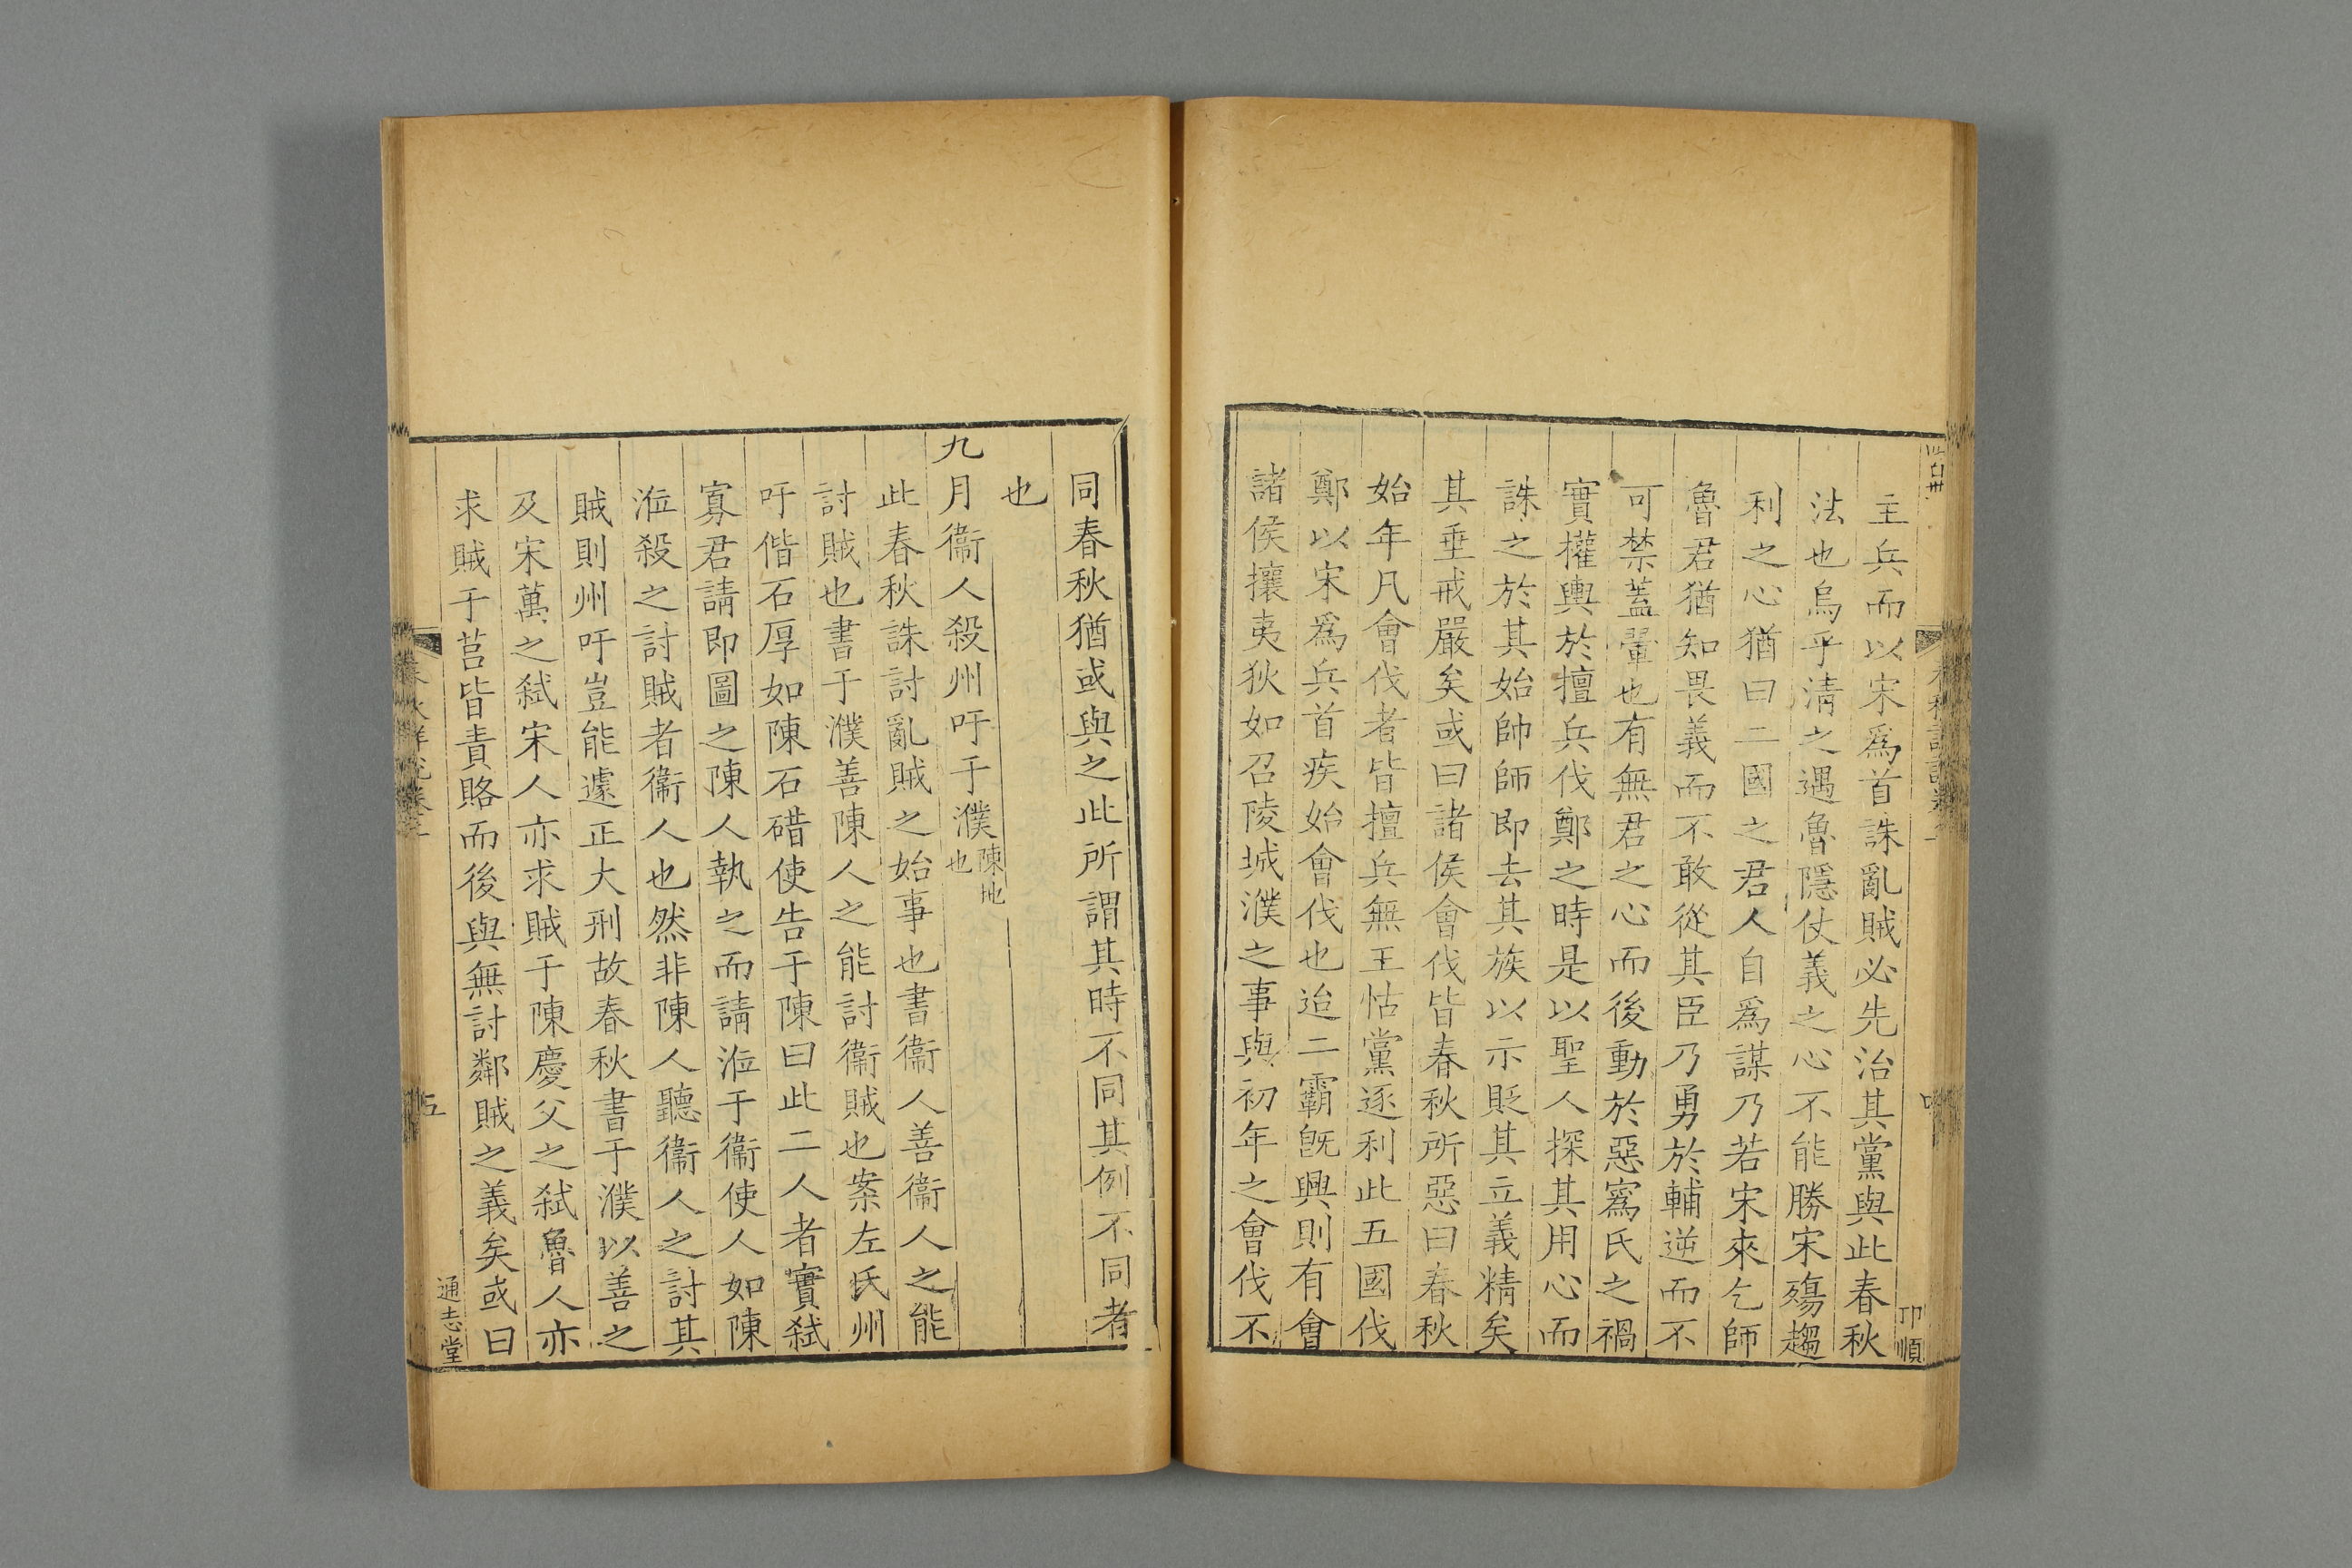 主兵而以宋爲首誅亂賊必先治其黨與此春秋
法也烏乎清之遇魯隱仗義之心不能勝宋殤趨
利之心猶曰二國之君人自爲謀乃若宋來乞師
魯君猶知畏義而不敢從其臣乃勇於輔逆而不
可禁蓋翬也有無君之心而後動於惡寪氏之禍
實權輿於擅兵伐鄭之時是以聖人探其用心而
誅之於其始帥師即去其族以示貶其立義精矣
其垂戒嚴矣或曰諸侯會伐皆春秋所惡曰春秋
始年凡會伐者皆擅兵無王怙黨逐利此五國伐
鄭以宋爲兵首疾始會伐也迨二霸旣興則有會
諸侯攘夷狄如召陵城濮之事與初年之會伐不
同春秋猶或與之此所謂其時不同其例不同者
也
九月衞人殺州吁于濮陳地也
此春秋誅討亂賊之始事也書衞人善衞人之能
討賊也書于濮善陳人之能討衞賊也案左氏州
吁偕石厚如陳石碏使告于陳曰此二人者實弑
寡君請即圖之陳人執之而請涖于衞使人如陳
涖殺之討賊者衞人也然非陳人聽衞人之討其
賊則州吁豈能遽正大刑故春秋書于濮以善之
及宋萬之弑宋人亦求賊于陳慶父之弑魯人亦
求賊于莒皆責賂而後與無討鄰賊之義矣或曰
五
通志堂